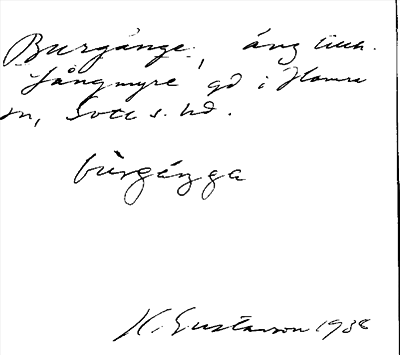 Burgänge, äng till
Långmyre gd i Hamra
sn, Sote s. hd.
bùrgánga
H. Gustavson 1938